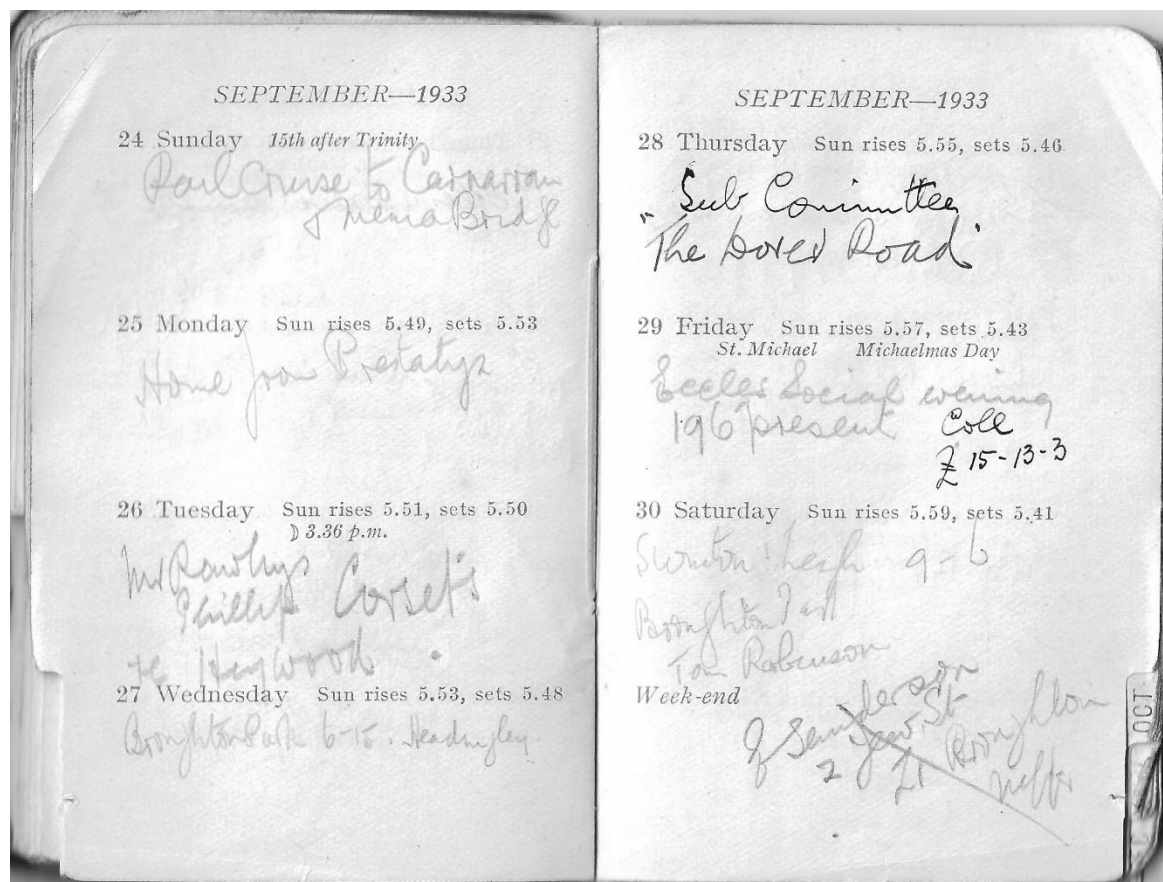 SEPTEMBER—1933
24 Sunday 15th after Trinity
Rail Cruise to Carnarvon
& Menia Bridge
25 Monday Sun rises 5.49, sets 5.53
Home from
26 Tuesday Sun rises 5.51, sets 5.50
☽ 3.36 p.m.
Mr
Phillips Corset's
Heywood
27 Wednesday Sun rises 5.53, sets 5.48
Broughton Park 6-15. Headingley
SEPTEMBER—1933
28 Thursday Sun rises 5.55, sets 5.46
Sub Committee
"The Dover Road"
29 Friday Sun rises 5.57, sets 5.43
St. Michael Michaelmas Day
Eccles Social evening
196 present Coll
£ 15-13-3
30 Saturday Sun rises 5.59, sets 5.41
Swinton Leigh 9-6
Broughton
Tom Robinson
Week-end
St
2 Broughton
OCT